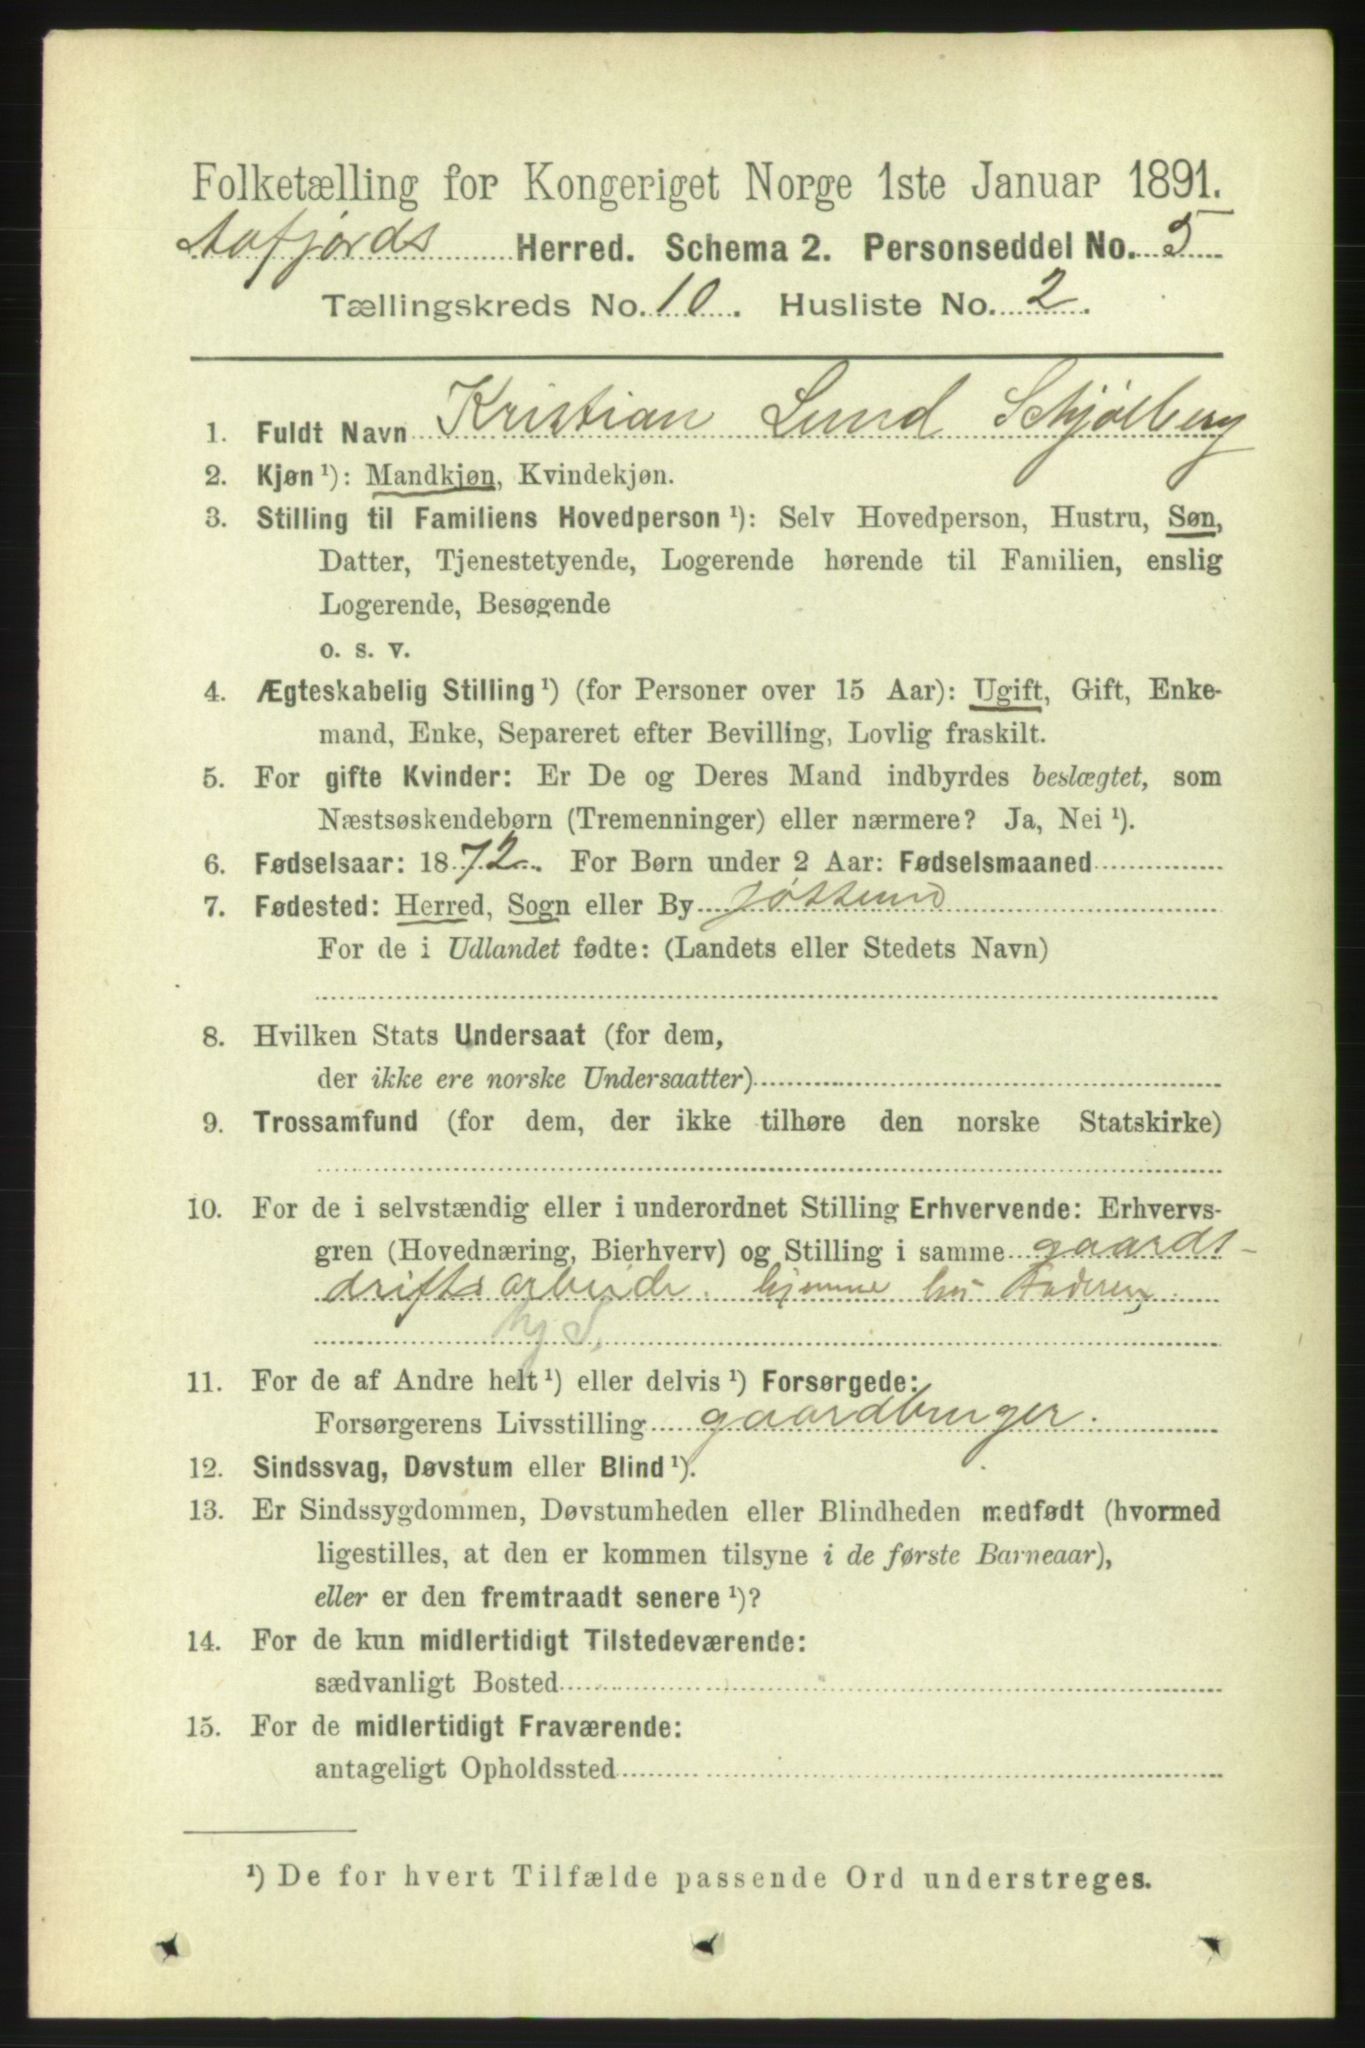 Folketælling for Kongeriget Norge 1ste Januar 1891.
Aafjords Herred. Schema 2. Personseddel No. 5
Tællingskreds No. 10. Husliste No. 2.
1. Fuldt Navn Kristian Lund Schjølberg
2. Kjøn ¹): Mandkjøn, Kvindekjøn.
3. Stilling til Familiens Hovedperson ¹): Selv Hovedperson, Hustru, Søn,
Datter, Tjenestetyende, Logerende hørende til Familien, enslig
Logerende, Besøgende
o. s. v.
4. Ægteskabelig Stilling ¹) (for Personer over 15 Aar): Ugift, Gift, Enke-
mand, Enke, Separeret efter Bevilling, Lovlig fraskilt.
5. For gifte Kvinder: Er De og Deres Mand indbyrdes beslægtet, som
Næstsøskendebørn (Tremenninger) eller nærmere? Ja, Nei ¹).
6. Fødselsaar: 1872. For Børn under 2 Aar: Fødselsmaaned
7. Fødested: Herred, Sogn eller By Jøssund
For de i Udlandet fødte: (Landets eller Stedets Navn)
8. Hvilken Stats Undersaat (for dem,
der ikke ere norske Undersaatter)
9. Trossamfund (for dem, der ikke tilhøre den norske Statskirke)
10. For de i selvstændig eller i underordnet Stilling Erhvervende: Erhvervs-
gren (Hovednæring, Bierhverv) og Stilling i samme gaards-
driftsarbeide. hjemme hos
hj S.
11. For de af Andre helt ¹) eller delvis ¹) Forsørgede:
Forsørgerens Livsstilling gaardbruger.
12. Sindssvag, Døvstum eller Blind ¹).
13. Er Sindssygdommen, Døvstumheden eller Blindheden medfødt (hvormed
ligestilles, at den er kommen tilsyne i de første Barneaar),
eller er den fremtraadt senere ¹)?
14. For de kun midlertidigt Tilstedeværende:
sædvanligt Bosted
15. For de midlertidigt Fraværende:
antageligt Opholdssted
¹) De for hvert Tilfælde passende Ord understreges.